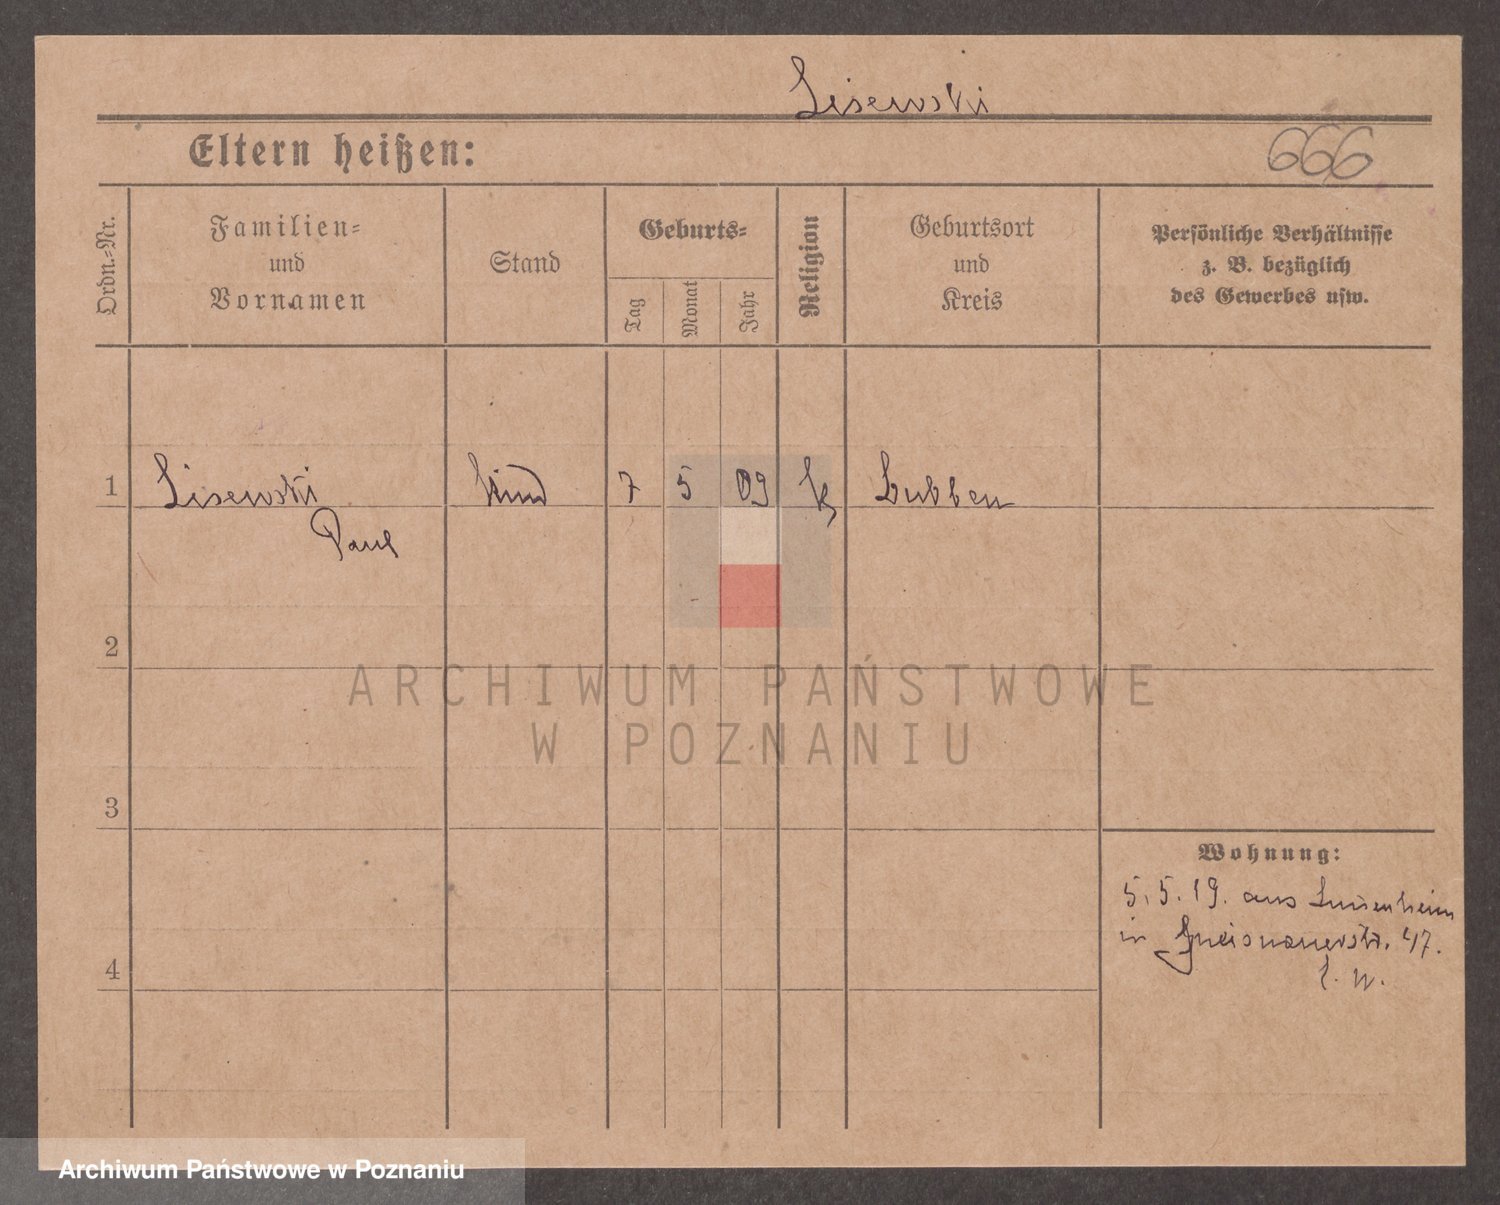 Lisewski
Eltern heißen:
666
Ordn.-Nr.
Familien-
und
Vornamen
Stand
Geburts-
Tag
Monat
Jahr
Religion
Geburtsort
und
Kreis
Persönliche Verhältnisse
z. B. bezüglich
des Gewerbes usw.
1
Lisewski
Paul
Kind
7
5
09
k
Lubben
2
ARCHIWUM PAŃSTWOWE
W POZNANIU
3
Wohnung:
5.5.19. aus
in 47.
4
Archiwum Państwowe w Poznaniu